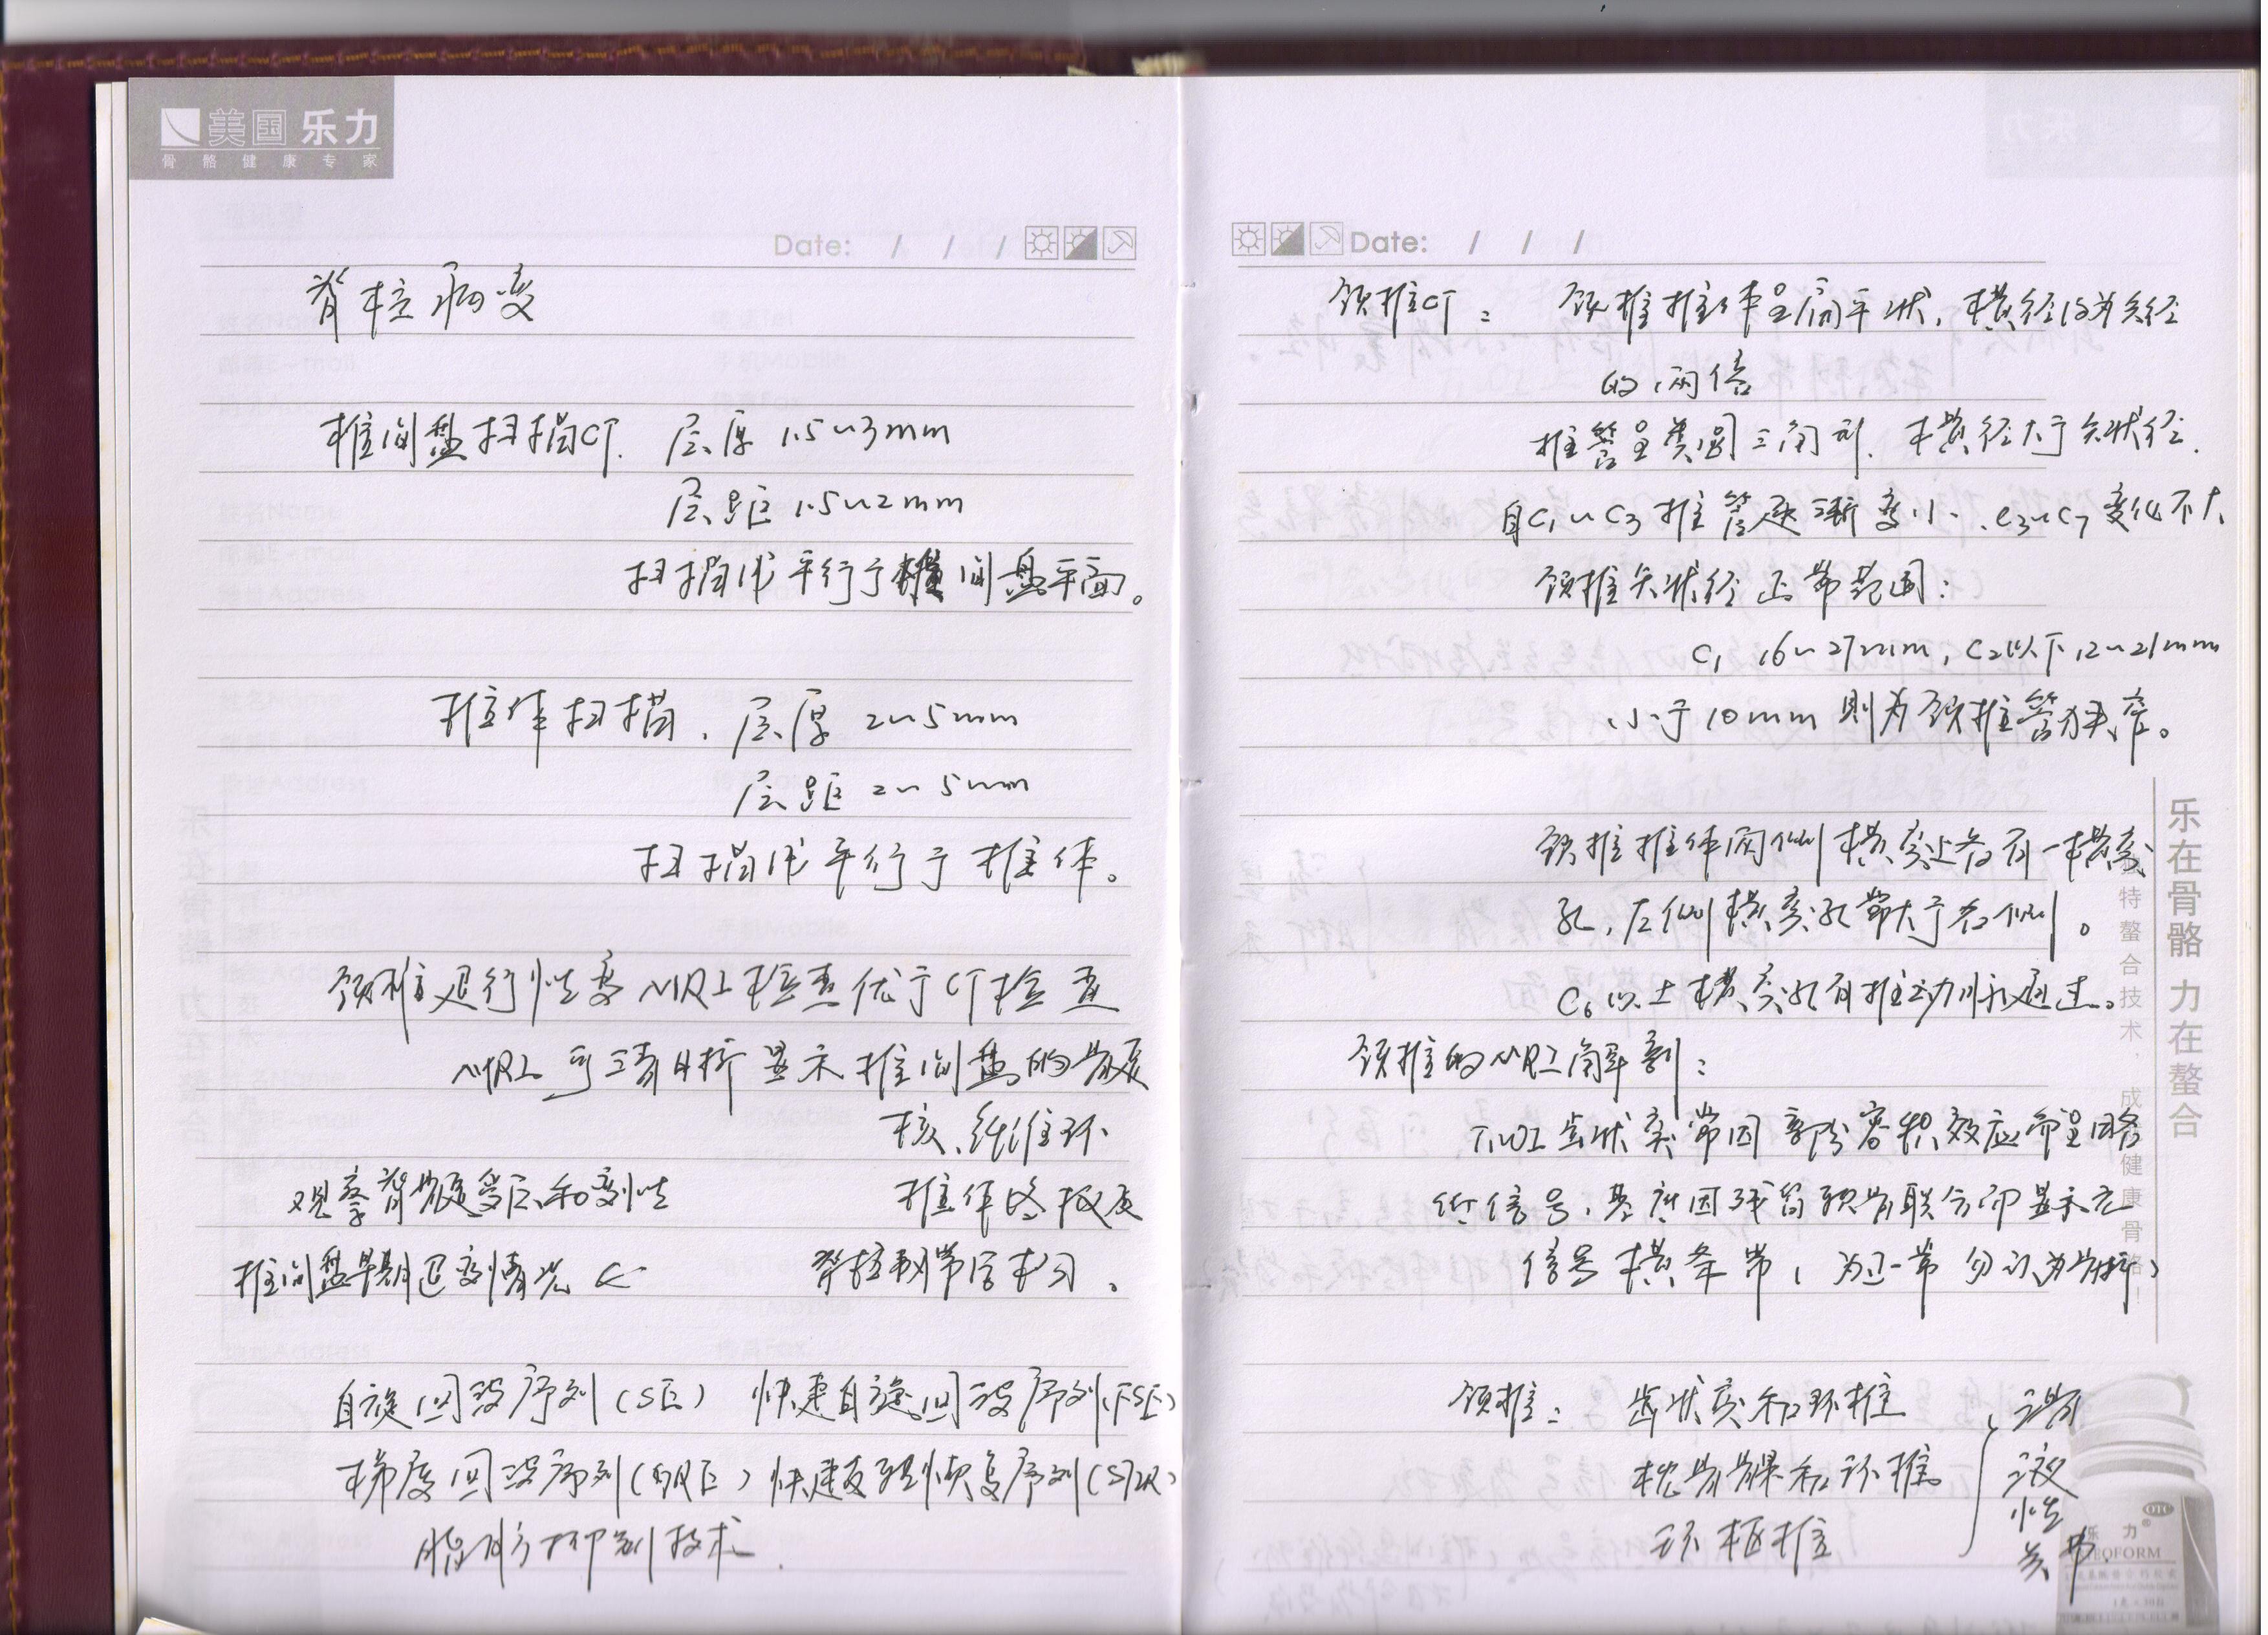 美国 乐力
骨骼健康专家
Date: / / /
脊柱病变
椎间盘扫描CT. 层厚 1.5~3mm
层距 1.5~2mm
扫描线平行于椎间盘平面。
椎体扫描. 层厚 2~5mm
层距 2~5mm
扫描线平行于椎体。
颈椎退行性变 MRI检查优于CT检查
MRI可清晰显示椎间盘的髓
核、纤维环
观察脊髓受压和变性 椎体终板及
椎间盘早期退变情况 ← 脊柱韧带
自旋回波序列(SE) 快速自旋回波序列(FSE)
梯度回波序列(GRE) 快速反转恢复序列(STIR)
脂肪抑制技术.
Date: / / /
颈椎CT: 颈椎椎体呈扁平状,横径约为矢径
的两倍
椎管呈类圆三角形. 横径大于矢状径.
自C₁~C₃椎管逐渐变小、C₃~C₇变化不大
颈椎矢状径正常范围:
C₁ 16~27mm, C₂以下12~21mm
小于10mm则为颈椎管狭窄。
颈椎椎体两侧横突上各有一横突
孔,左侧横突孔常大于右侧。
C₆以上横突孔有椎动脉通过。
颈椎的MRI解剖:
T₁WI 齿状突常因部分容积效应而呈略
低信号,基底因残留软骨联合而显示低
信号横条带(为正常勿认为骨折)
颈椎: 齿状突和环椎
枕骨髁和环椎
环枢椎
滑
液
性
关
节
乐在骨骼 力在螯合
独特螯合技术,成就健康骨骼!
OTC
乐力®